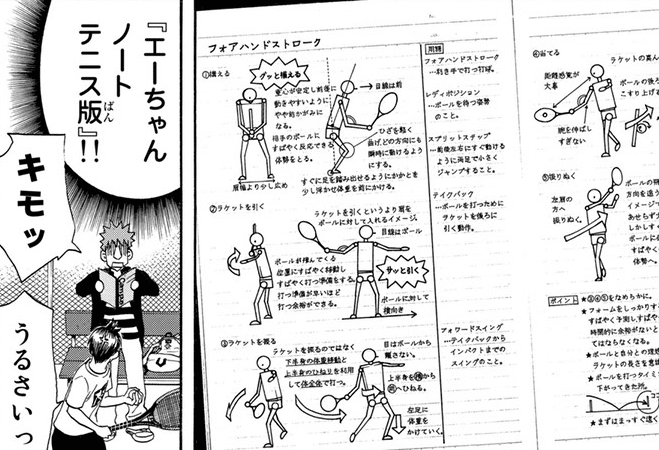 『エーちゃん
ノート
テニス版』!!
ばん
キモッ
うるさいっ
フォアハンドストローク
①構える
グッと構える
重心が安定し前後に
動きやすいように
やや前かがみに
なる。
相手のボールに
すばやく反応できる
体勢をとる。
肩幅より少し広め
目線は前
ひざを軽く
曲げ、どの方向にも
瞬時に動けるよう
にする。
すぐに足を踏み出せるようにかかとを
少し浮かせ体重を前にかける。
②ラケットを引く
ラケットを引くというより肩を
ボールに対して入れるイメージ。
目線はボール
ボールが飛んでくる
位置にすばやく移動し
すばやく打つ準備をする。
打つ準備が早いほど
打つ余裕ができる。
サッと引く
ボールに対して
横向き
③ラケットを振る
ラケットを振るのではなく
下半身の体重移動と
上半身のひねりを利用
して体全体で打つ。
目はボールから
離さない。
へひねる。
左足に
体重を
かけていく。
用語
フォアハンドストローク
…利き手で打つ打球。
レディポジション
…ボールを待つ姿勢
のこと。
スプリットステップ
…前後左右にすぐ動ける
ように両足で小さく
ジャンプすること。
テイクバック
…ボールを打つために
ラケットを後ろに
引く動作。
フォワードスイング
…テイクバックから
インパクトまでの
スイングのこと。
④当てる
ラケットの真ん
距離感覚が
大事
ボールの後ろ
こすり上げる
腕を伸ばし
すぎない
⑤振りぬく
左肩の
方へ
振りぬく。
方向を追う
イメージで
あせらず
しかしすばや
ボールに
すばやく
体勢へ。
ポイント
★③④⑤をなめらかに。
★フォームをしっかり
すばやく予測し、すばや
時間的に余裕がないと
てはならなくなる。
★ボールと自分との距
ラケットの長さを意識
★ボールを打つタイミ
下がってきた所。
★まずはまっすぐ速く